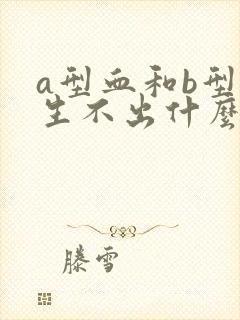 a型血和b型
生不出什麼
滕雪